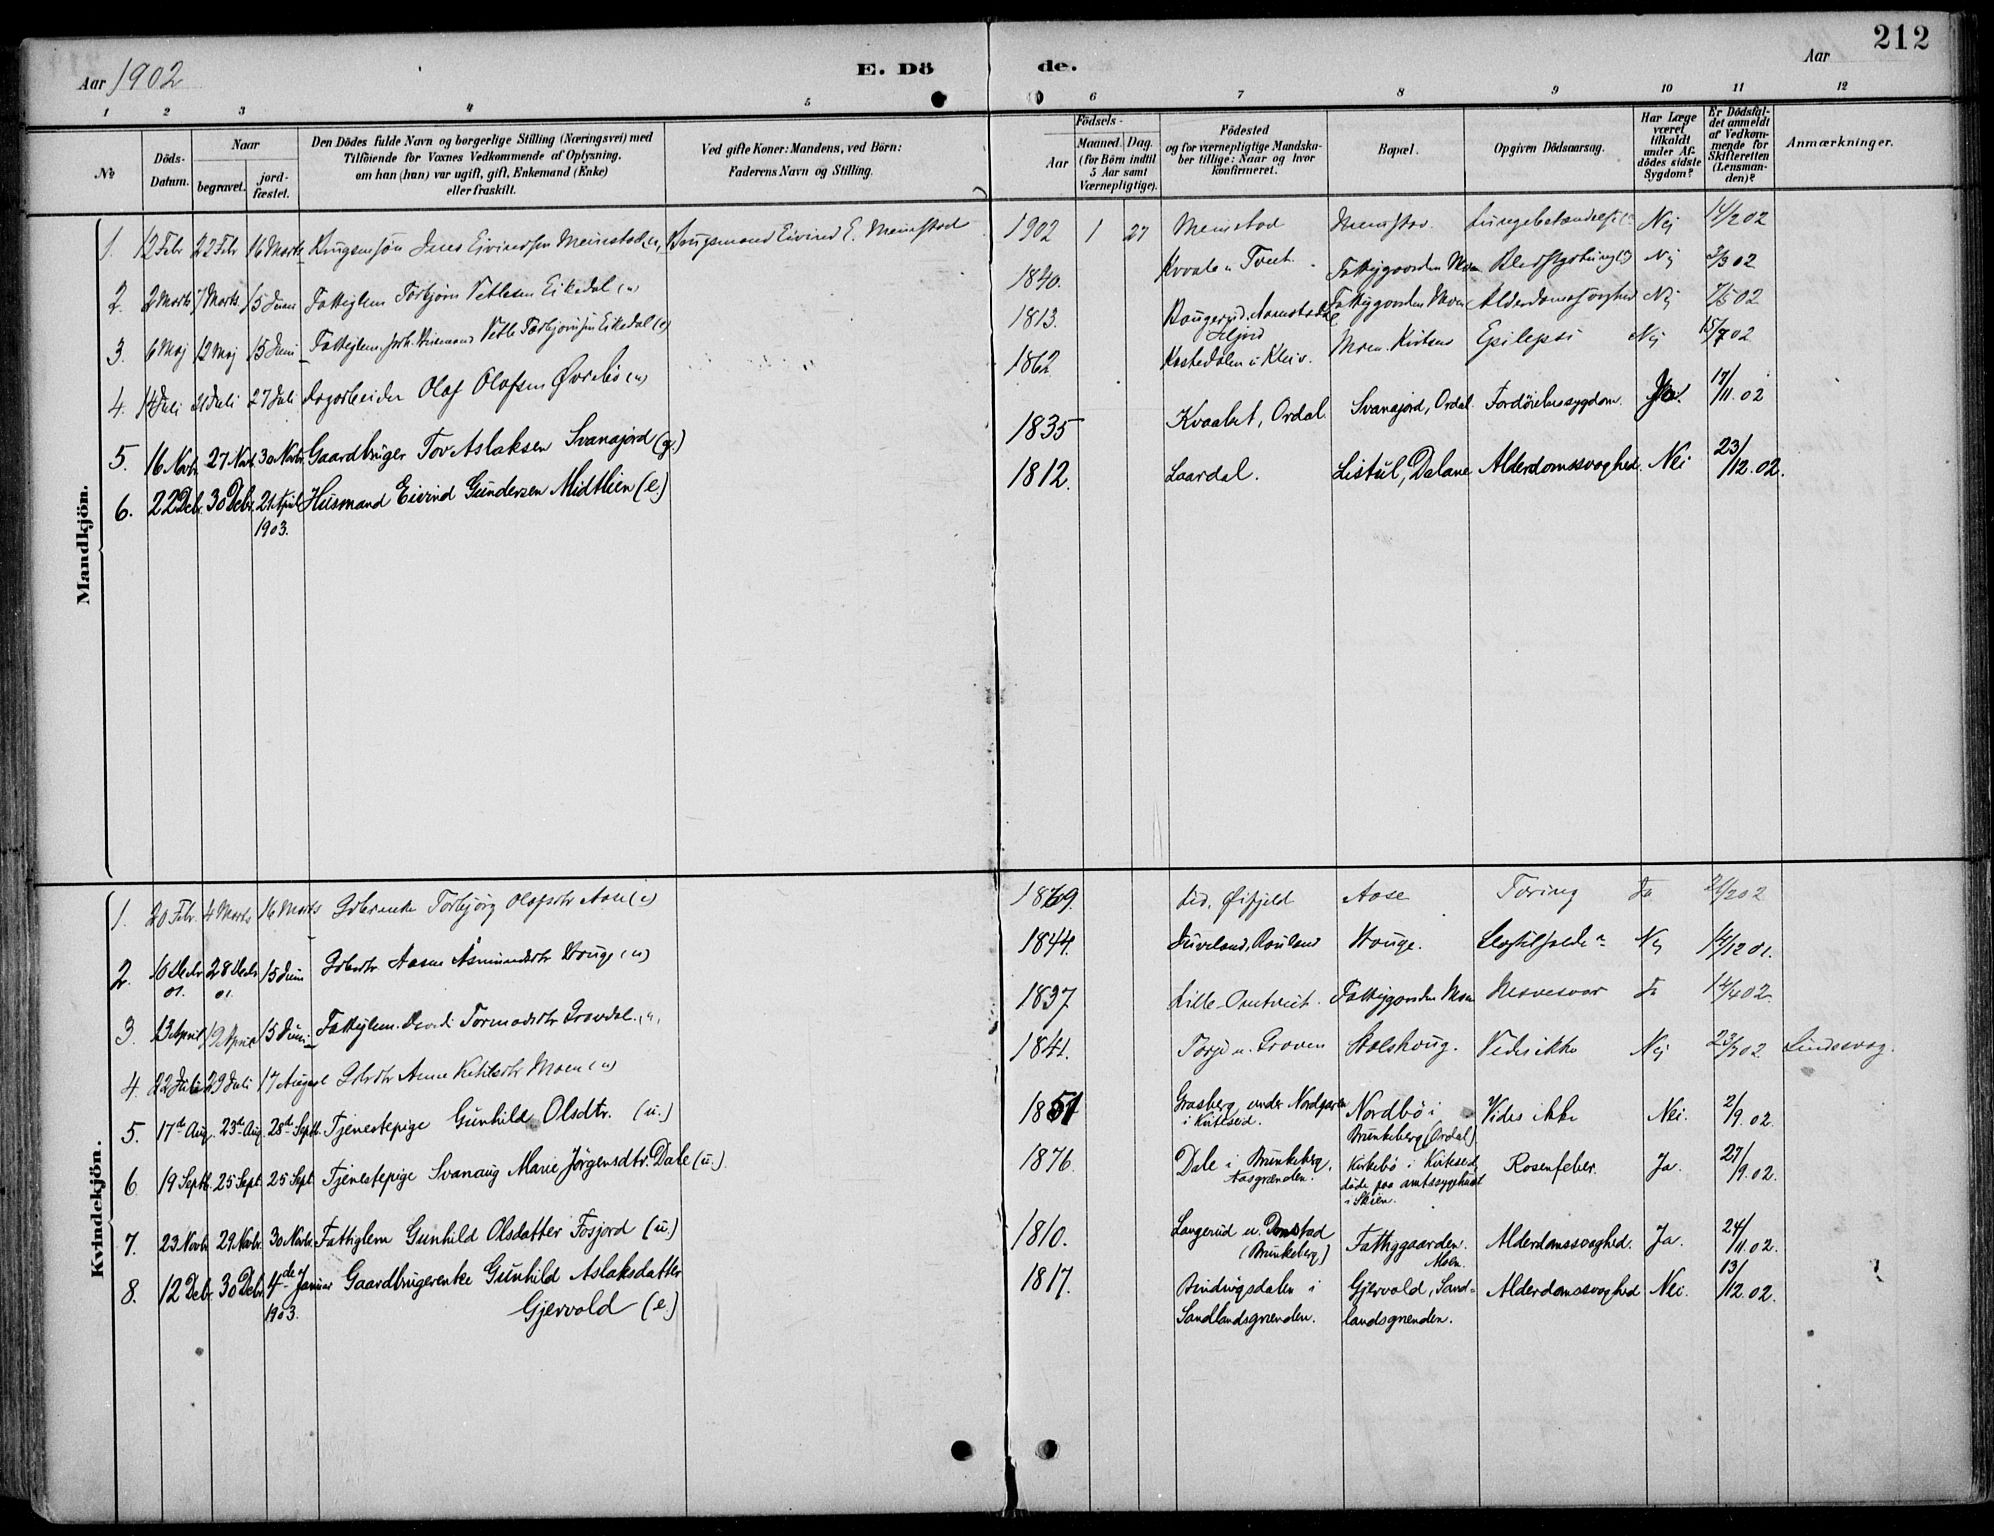 212
Aar 1902
E. Döde.
Aar
1 2 3 4 5 6 7 8 9 10 11 12
№
Döds-Datum.
Naar
begravet.
jord-fæstet.
Den Dödes fulde Navn og borgerlige Stilling (Næringsvei) med
Tilföiende for Voxnes Vedkommende af Oplysning,
om han (hun) var ugift, gift, Enkemand (Enke)
eller fraskilt.
Ved gifte Koner: Mandens, ved Börn:
Faderens Navn og Stilling.
Födsels-
Aar
Maaned.
Dag.
(for Börn indtil
5 Aar samt
Værnepligtige).
Födested
og for værnepligtige Mandska-
ber tillige: Naar og hvor
konfirmeret.
Bopæl.
Opgiven Dödsaarsag.
Har Læge
været
tilkaldt
under Af-
dödes sidste
Sygdom?
Er Dödsfal-
det anmeldt
af Vedkom-
mende for
Skifteretten
(Lensman-
den)?
Anmærkninger.
Mandkjön.
1. 12 Febr 22 Febr 16 Marts Jens Eivindsen Meinstad (u) Eivind E. Meinstad 1902 1 27 Meinstad Meinstad. Nej 14/2 02
2. 2 Marts 7 Marts 15 Juni Fattiglem Torbjørn Vetlesen Eikedal (u) 1840. Kvaale u Tveit Fattiggaarden Moen Nej 3/3 02
3. 6 Maj 12 Maj 15 Juni Fattiglem Vetle Torbjørnsen Eikedal (e) 1813. Fattiggaarden Moen Alderdomssvaghed Nej 7/5 02
4. 14 Juli 21 Juli 27 Juli Dagarbeider Olaf Olafsen Øvrebø (u) 1862 Kostedalen u Kleiv. Moen. Kvitseid Epilepsi Nej 15/7 02
5. 16 Novb. 27 Novb. 30 Novbr. Gaardbruger Tov Aslaksen Svanajord (g.) 1835 Kvaalset, Ordal. Svanajord, Ordal. Fordøielsessygdom. Ja. 17/11.02
6. 22 Debr. 30 Debr. 21 April Husmand Eivind Gundersen Midtlien (e.) 1812. Laardal. Listul, Dalane Alderdomssvaghed. Nei 23/12.02.
1903.
Kvindekjön.
1. 20 Febr. 4 Marts 16 Marts Torbjørg Olafsdtr Aase (e) 1869. Øifjeld Aase Tæring Ja 21/2 02
2. 10 Decbr 28 Decbr 15 Juni Aasne Asmundsdtr Houge (u) 1844. Juveland, Rauland Houge. Nej 14/12 01.
01. 01.
3. 13 April 19 April 15 Juni Fattiglem. Tormodsdtr Grovdal (u) 1837 Lille-Omtveit. Fattiggaarden Moen Ja 14/4 02.
4. 22 Juli 29 Juli 17 August Anne Ketilsdtr Moen (u) 1841. Groven Stolshoug. Vides ikke Nej 23/7 02 Sindssvag.
5. 17de Aug. 23de Aug. 28de Septb. Tjenestepige Gunhild Olsdtr. (u.) 1851 Grasberg under Nordgarden
i Kviteseid. Nordbø i
Brunkeberg (Ordal) Vides ikke Nei. 2/9.02.
6. 19 Septb. 25 Sept. 25 Sept. Tjenestepige Svanaug Marie Jørgensdtr. Dale (u.) 1876. Dale i Brunkeberg,
Aasgrænden. Kirkebø i Kviteseid,
døde paa amtssygehuset
i Skien. Rosenfeber. Ja. 27/9.02.
7. 23 Novbr. 29 Novbr. 30 Novbr. Fattiglem Gunhild Olsdatter Fosjord (u.) 1810. Langerud u.
(Brunkeberg) Fattiggaarden.
Moen. Alderdomssvaghed. Ja. 24/11.02.
8. 12 Debr. 30 Debr. 4de Januar Gaardbrugerenke Gunhild Aslaksdatter
1903. Gjervold (e.) 1817. Bindingsdalen i
Sandlandsgrænden. Gjervold, Sand-
landsgrænden. Alderdomssvaghed Nei. 13/12.02.